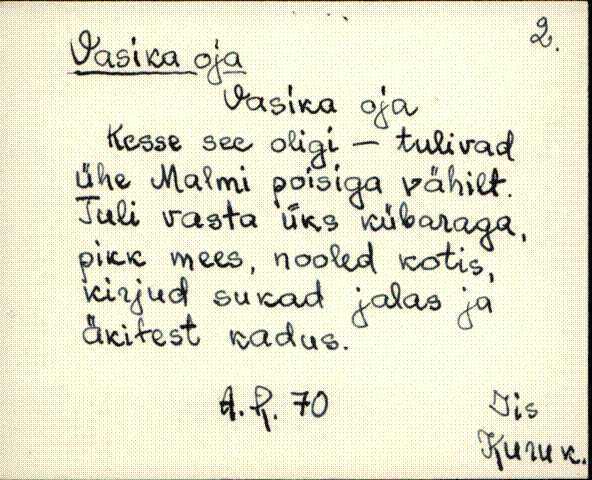 2.
Vasika oja
Vasika oja
Kesse see oligi – tulivad
ühe Malmi poisiga vähilt.
Tuli vasta üks kübaraga,
pikk mees, nooled kotis,
kirjud sukad jalas ja
äkitest kadus.
A.R. 70
Iis
Kuruk.